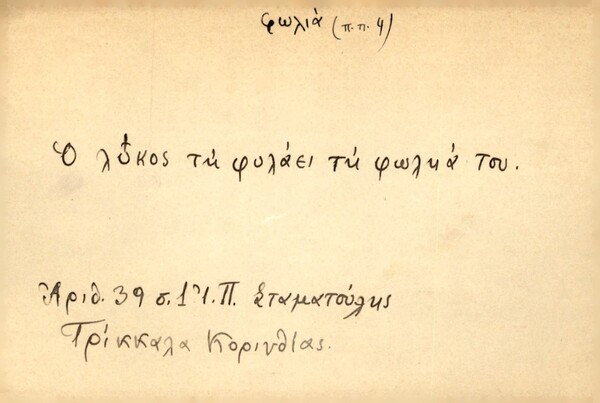 φωλιά (π.π. 4)
Ὁ λύκος τὴ φυλάει τὴ φωληά του.
Ἀριθ. 39 σ. 1 Ἰ. Π. Σταματούλης
Τρίκκαλα Κορινθίας.